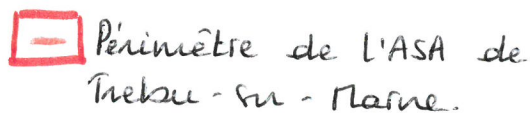 Périmètre de l'ASA de
Trelou-sur-Marne.